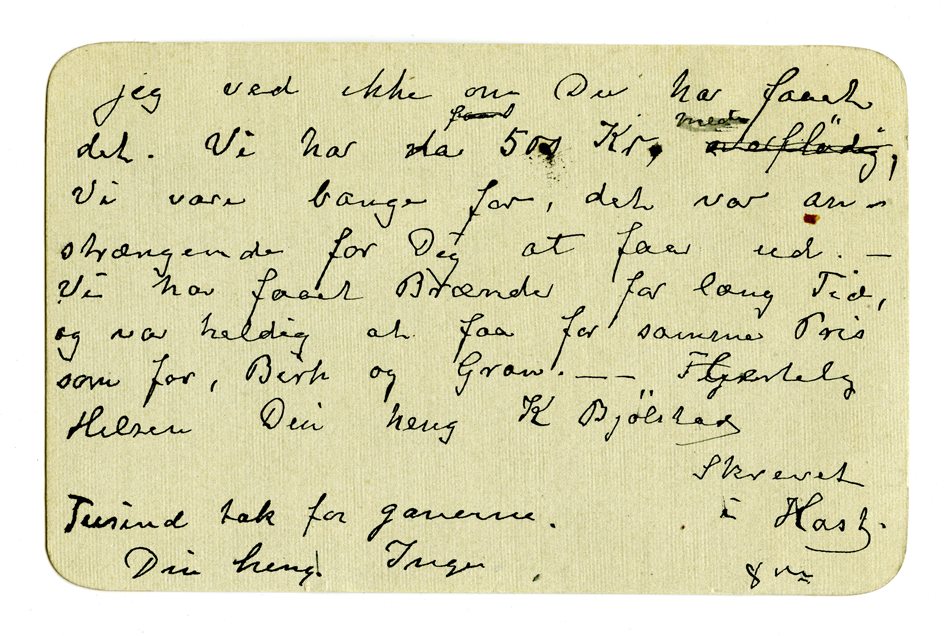 jeg ved ikke om Du har faaet
det. Vi har da faaet 500 Kr, mere overflödig,
Vi vare bange for, det var an-
strængende for Dig at faa ud. —
Vi har faaet Brænde for læng Tid,
og var heldig at faa for samme Pris
som for, Birk og Gran. — — Hjertelig
Hilsen Din heng K Bjölstad
Skrevet
i Hast.
Tusind tak for gaverne.
Din heng. Inga